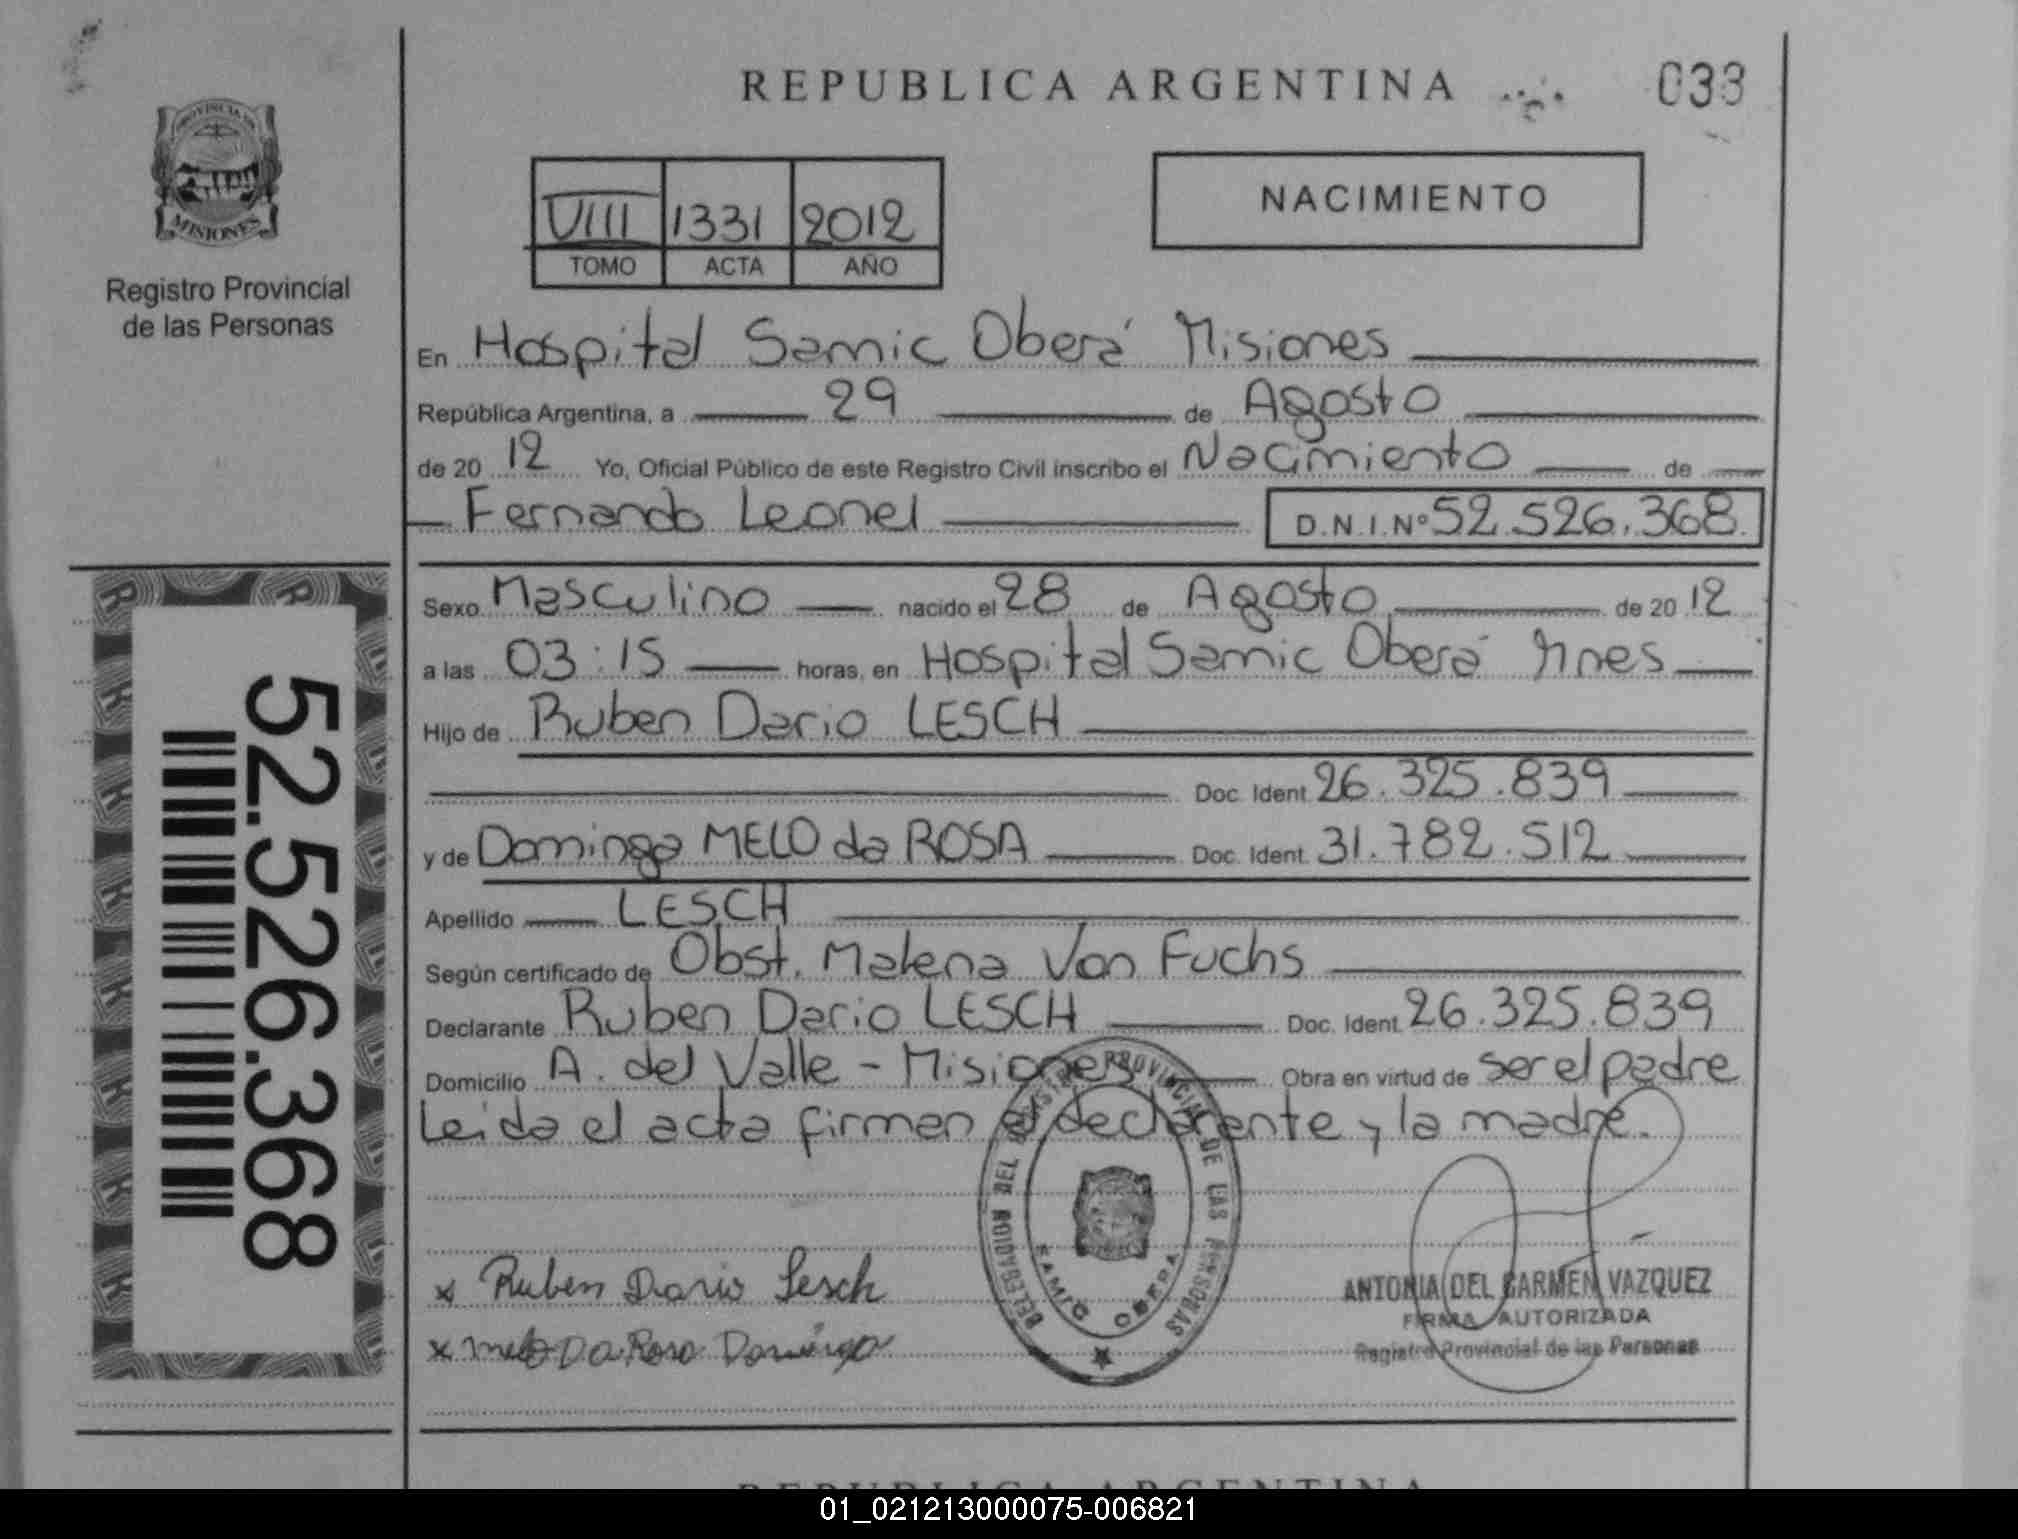 REPUBLICA ARGENTINA
033
PROVINCIA DE
MISIONES
Registro Provincial
de las Personas
VIII 1331 2012
TOMO ACTA AÑO
NACIMIENTO
En Hospital Samic Oberá Misiones
República Argentina, a 29 de Agosto
de 20 12 Yo, Oficial Público de este Registro Civil inscribo el Nacimiento de
Fernando Leonel D.N.I.Nº 52.526.368
Sexo Masculino nacido el 28 de Agosto de 20 12
a las 03:15 horas, en Hospital Samic Oberá Mnes
Hijo de Ruben Dario LESCH
Doc. Ident. 26.325.839
y de Dominga MELO da ROSA Doc. Ident. 31.782.512
Apellido LESCH
Según certificado de Obst. Malena Von Fuchs
Declarante Ruben Dario LESCH Doc. Ident. 26.325.839
Domicilio A. del Valle - Misiones Obra en virtud de ser el padre
Leida el acta firman el declarante y la madre.
52.526.368
DELEGACION DEL REGISTRO PROVINCIAL DE LAS PERSONAS
SAMIC OBERA
x Ruben Dario Lesch
x Melo Da Rosa Dominga
ANTONIA DEL CARMEN VAZQUEZ
FIRMA AUTORIZADA
Registro Provincial de las Personas
REPUBLICA ARGENTINA
01_021213000075-006821